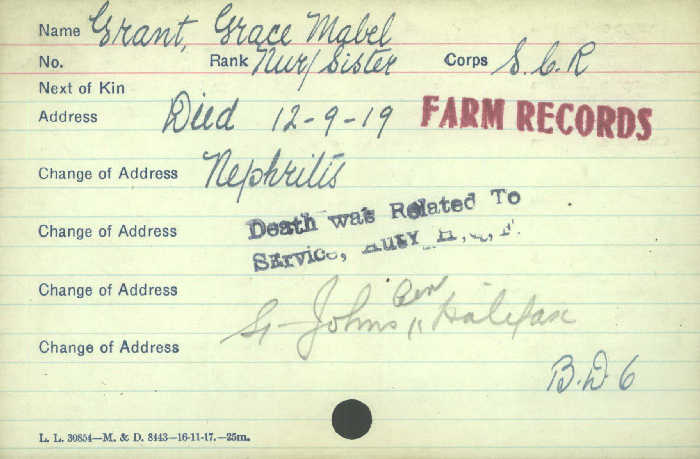 Name Grant, Grace Mabel
No. Rank Nur/Sister Corps S.C.R
Next of Kin
Address Died 12-9-19 FARM RECORDS
Change of Address Nephritis
Change of Address Death was Related To
Service, Auty H.Q.
Change of Address St-Johns Cem Halifax
Change of Address
B.D. 6
L. L. 30854—M. & D. 8443—16-11-17.—25m.